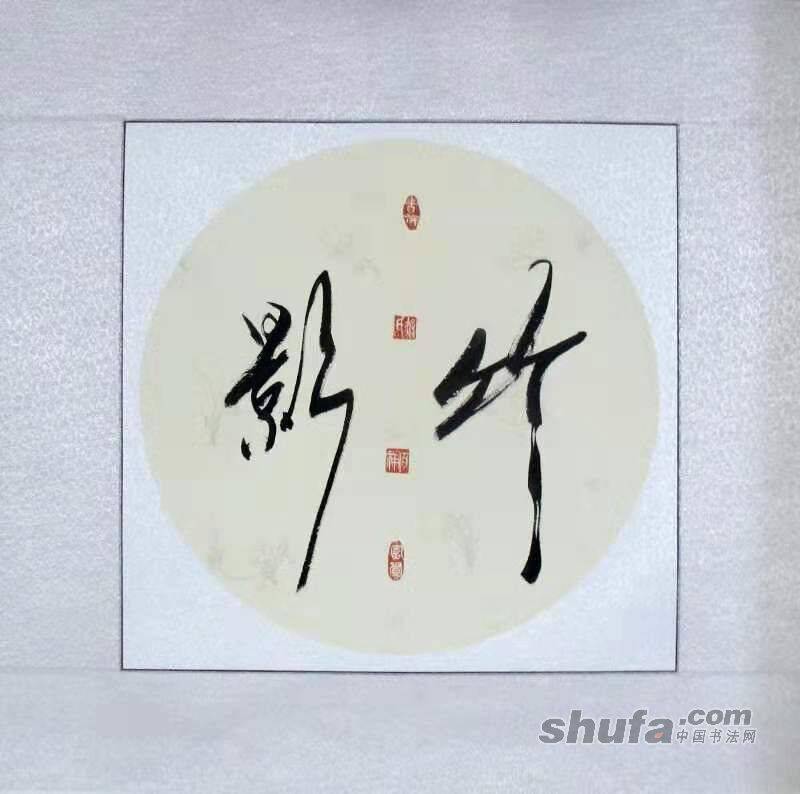 竹影
shufa.com
中国书法网